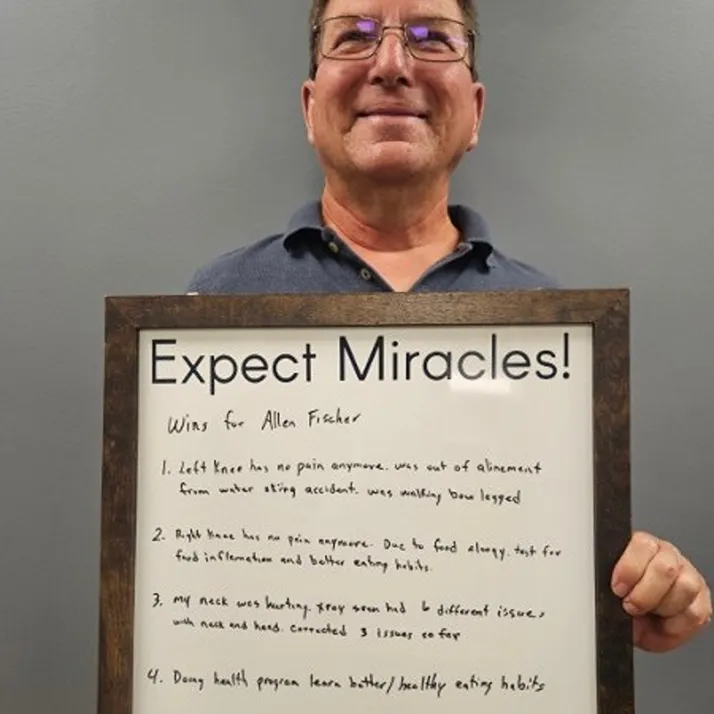 Expect Miracles!
Wins for Allen Fischer
1. Left Knee has no pain anymore. was out of alinement
from water sking accident. was walking bow legged
2. Right knee has no pain anymore. Due to food alergy. test for
food inflemation and better eating habits.
3. My neck was hurting. xray scan had 6 different issues
with neck and head. corrected 3 issues so far
4. Doing health program learn better/healthy eating habits